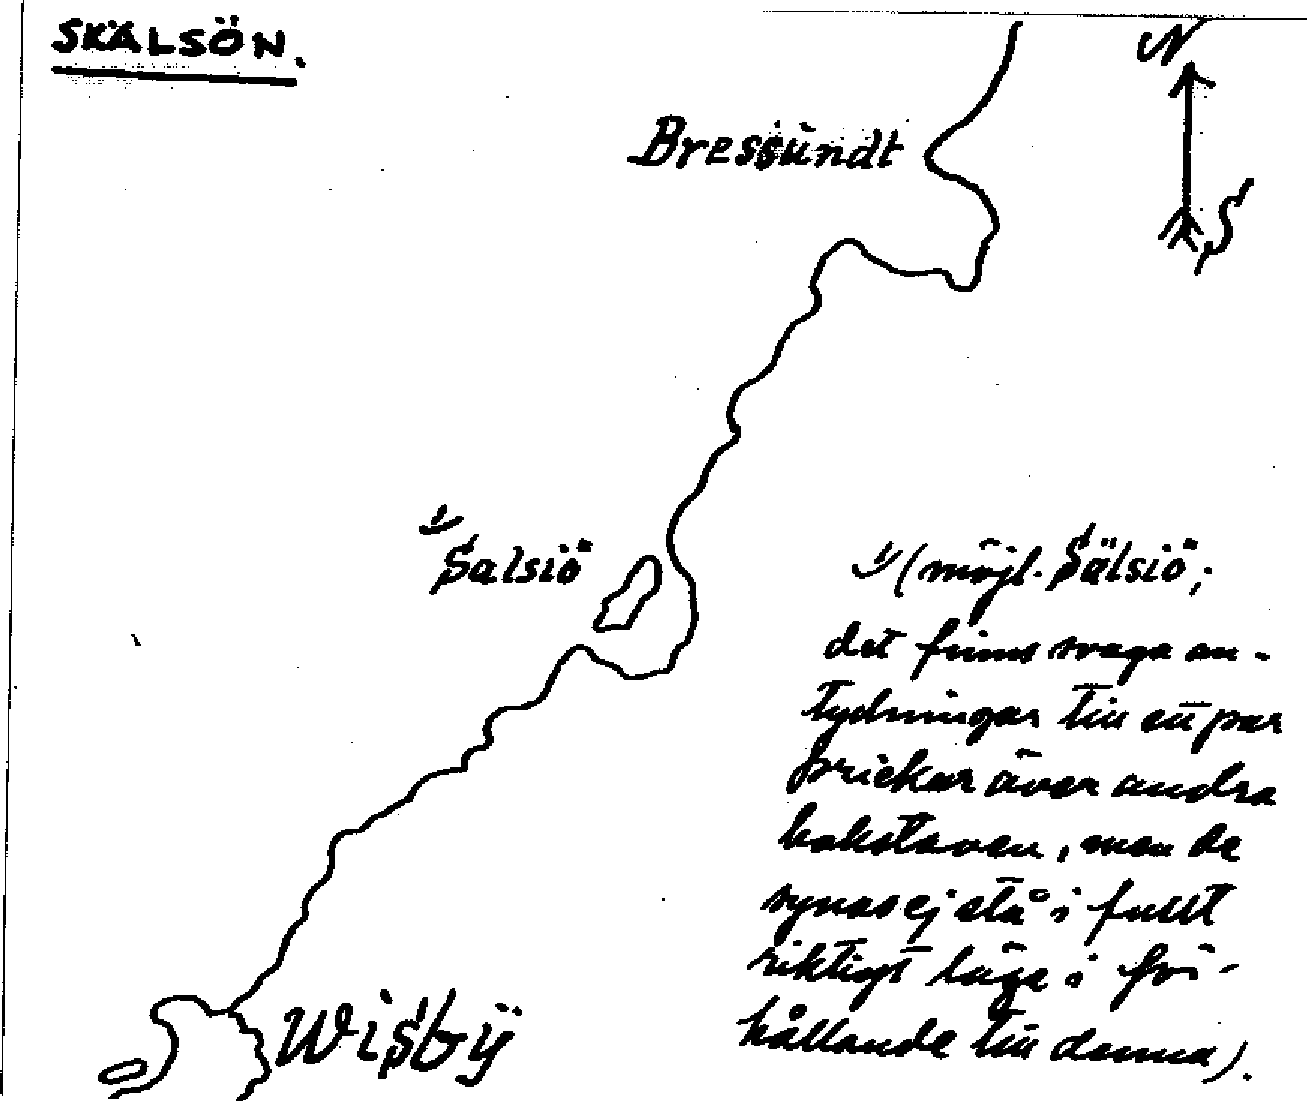 SKÄLSÖN.
N
Bressundt
S
1)
Salsiö
1) (möjl. Sälsiö;
det finns svaga an-
tydningar till ett par
prickar över andra
bokstaven, men de
synas ej stå i fullt
riktigt läge i för-
hållande till denna).
Wisbÿ